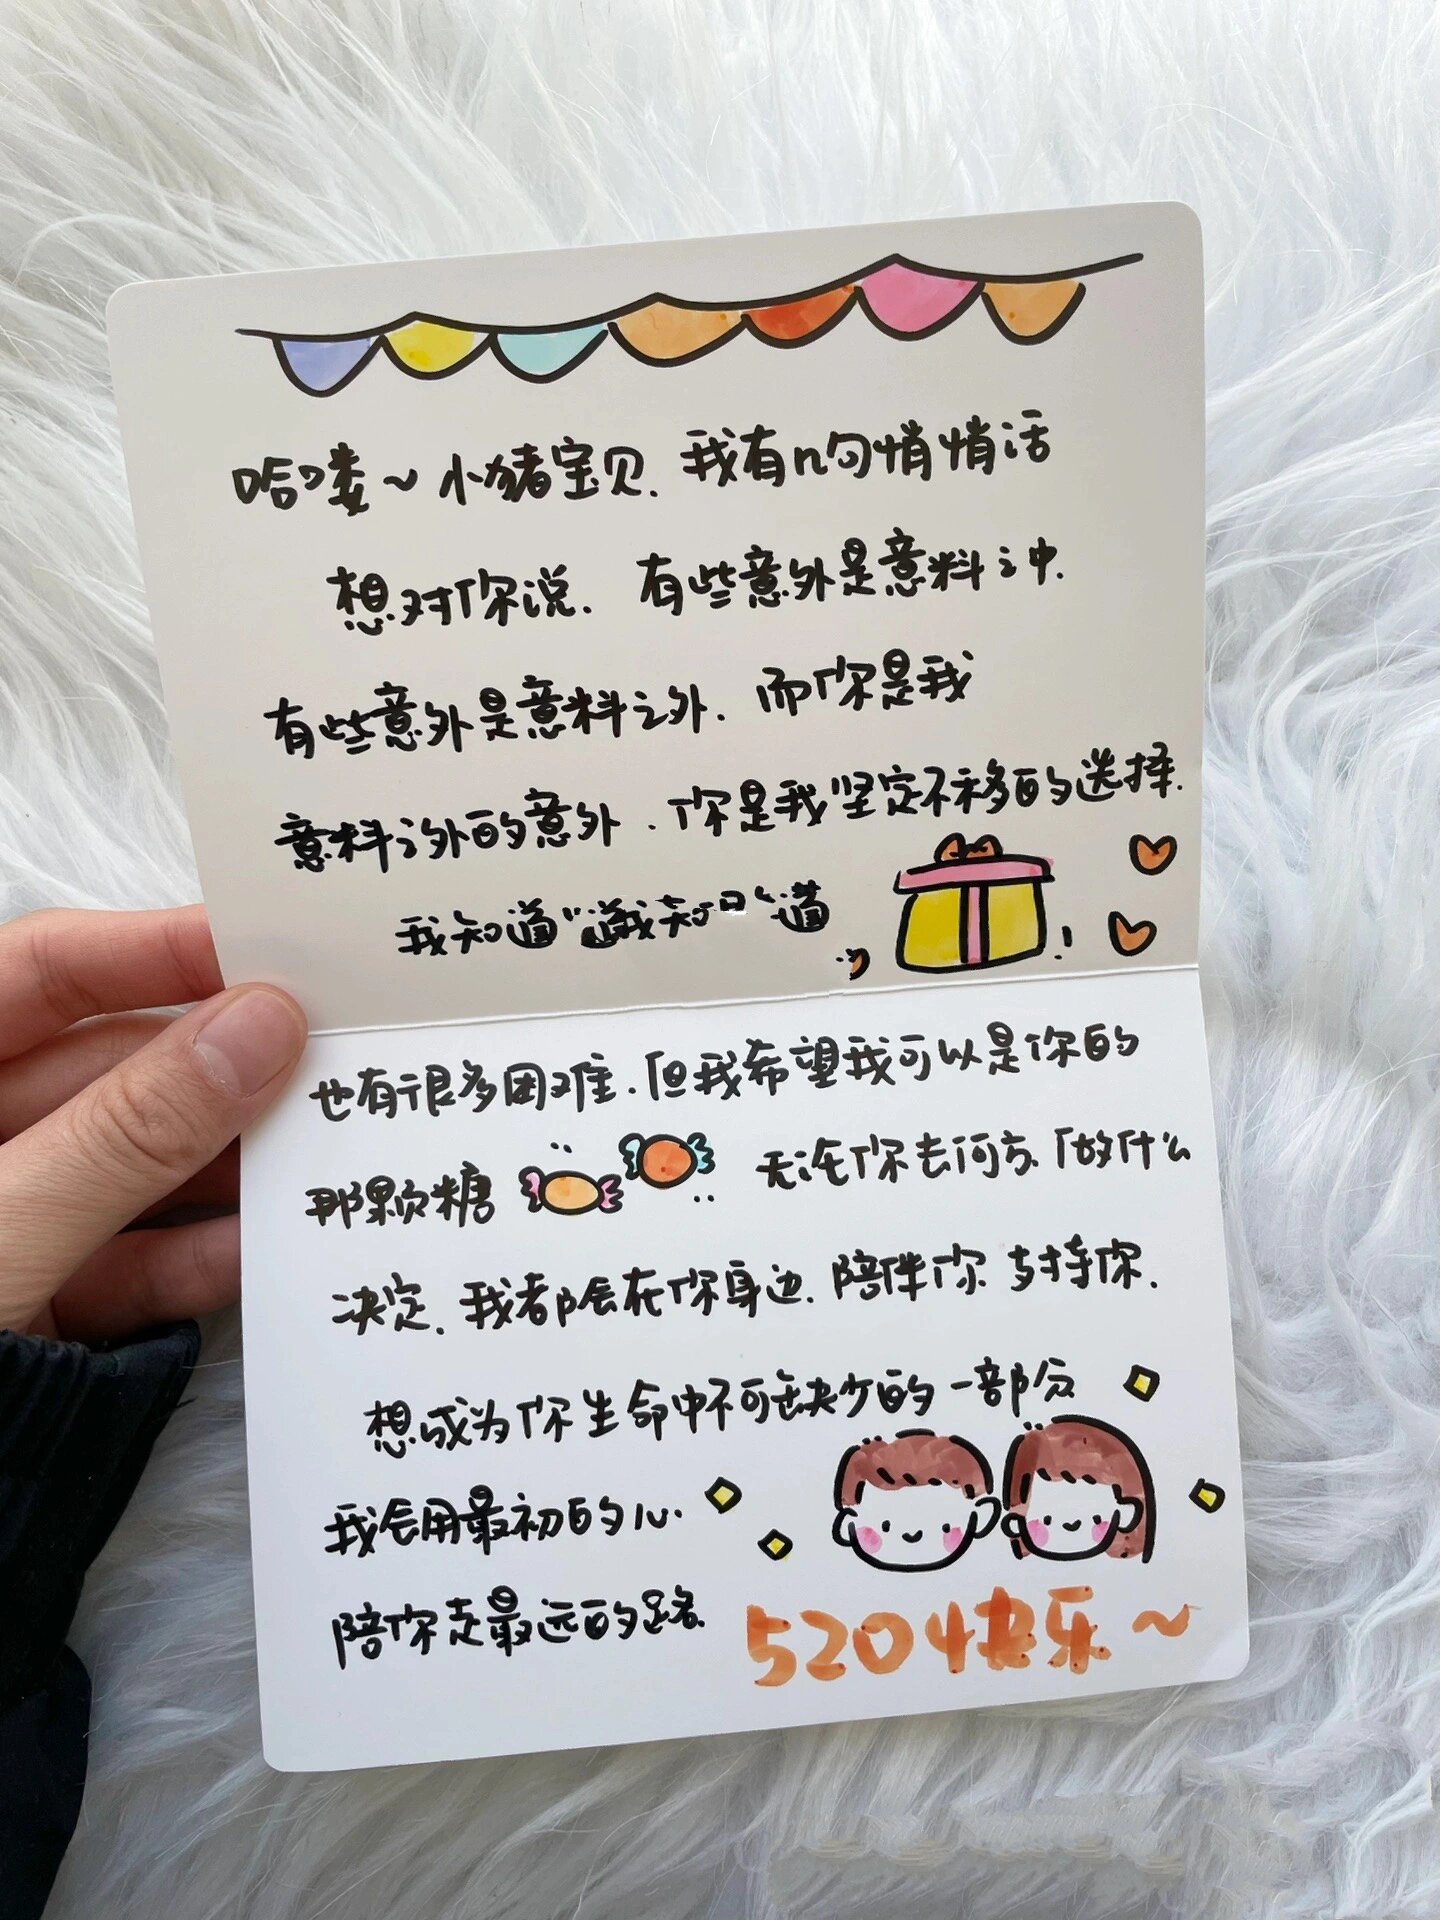 哈喽~小猪宝贝.我有几句悄悄话
想对你说.有些意外是意料之中.
有些意外是意料之外.而你是我
意料之外的意外.你是我坚定不移的选择.
我知道
也有很多困难.但我希望我可以是你的
那颗糖 无论你去何方.做什么
决定.我都会在你身边.陪伴你 支持你.
想成为你生命中不可缺少的一部分
我会用最初的心.
陪你走最远的路.
520快乐~